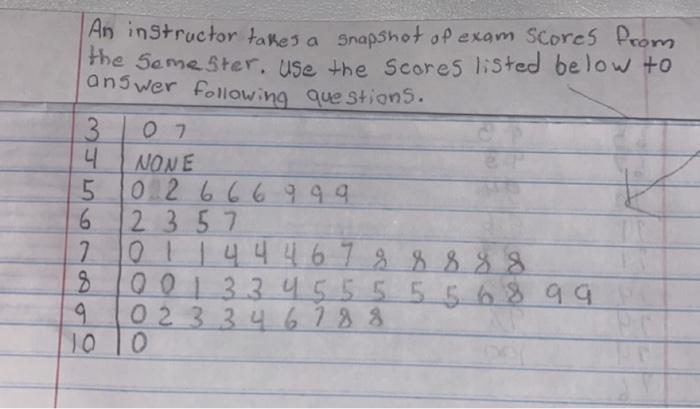 An instructor takes a snapshot of exam scores from
the semester. Use the scores listed below to
answer following questions.
3 | 0 7
4 | NONE
5 | 0 2 6 6 6 9 9 9
6 | 2 3 5 7
7 | 0 1 1 4 4 4 6 7 8 8 8 8 8
8 | 0 0 1 3 3 4 5 5 5 5 5 6 8 9 9
9 | 0 2 3 3 4 6 7 8 8
10 | 0